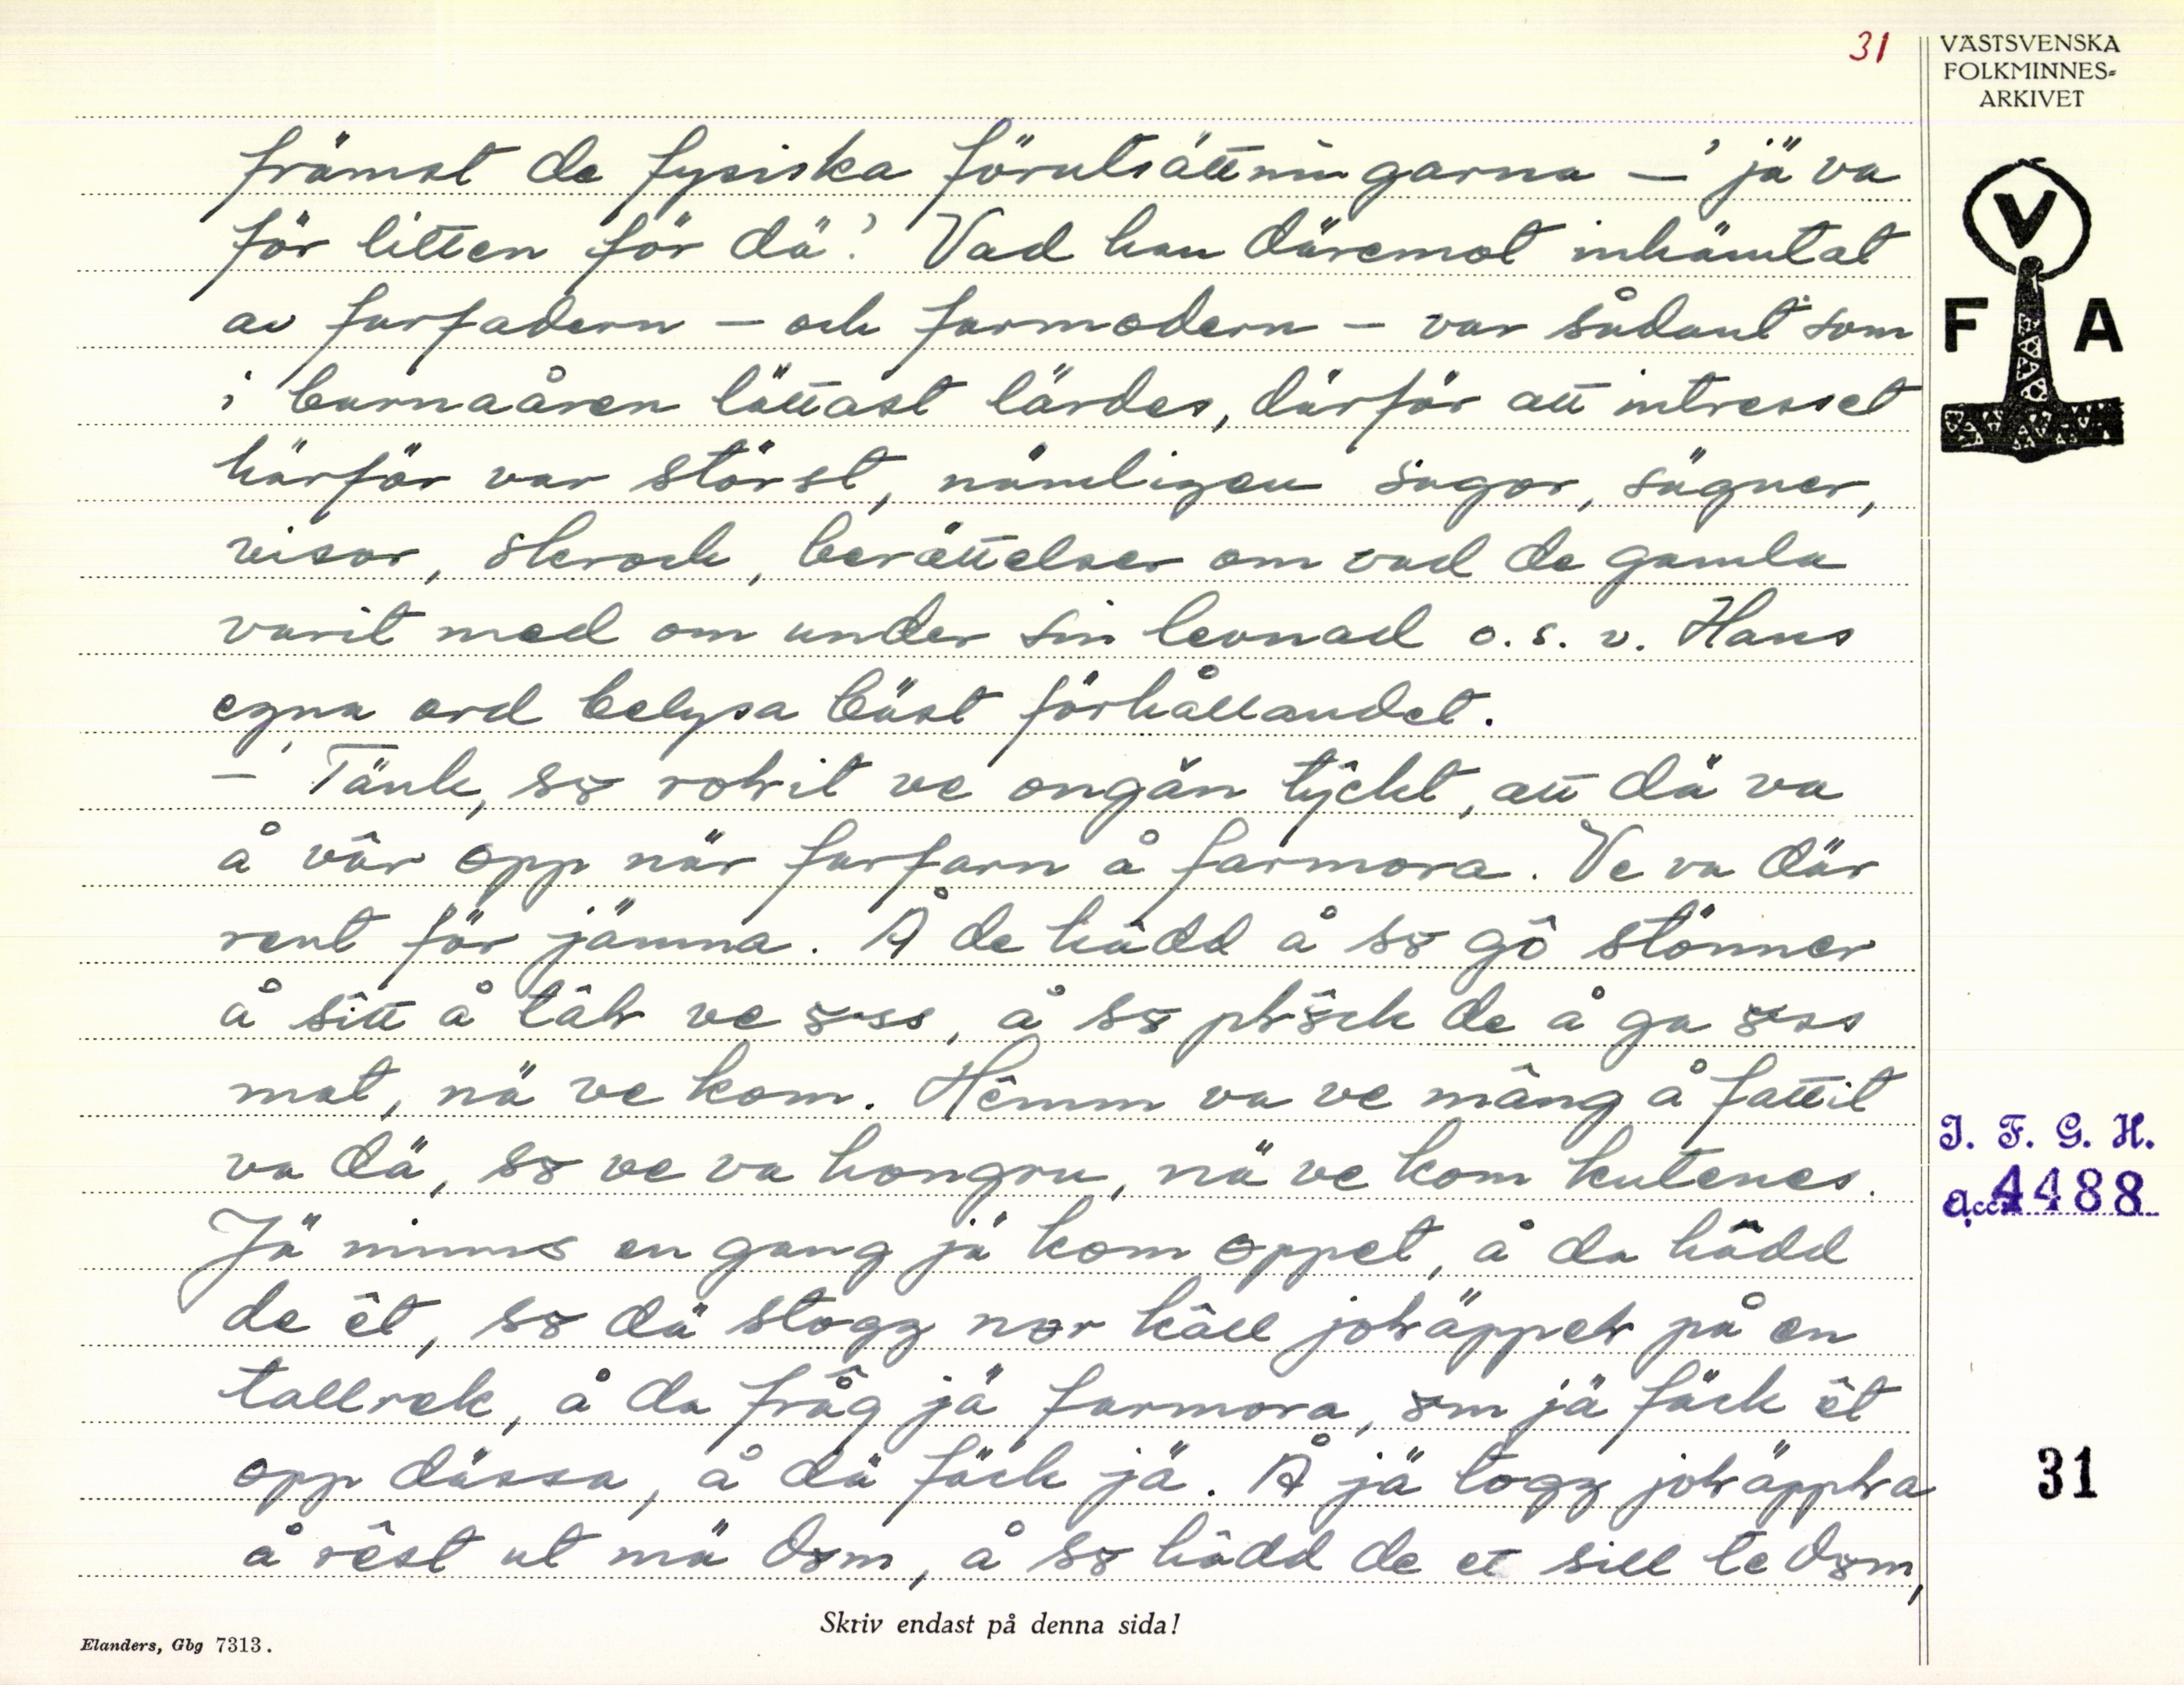 31
VÄSTSVENSKA
FOLKMINNES-
ARKIVET
V
F A
främst de fysiska förutsättningarna – 'jä va
för litten för dä'. Vad han däremot inhämtat
av farfadern – och farmodern – var sådant som
i barnaåren lättast lärdes, därför att intresset
härför var störst, nämligen sagor, sägner,
visor, skrock, berättelser om vad de gamla
varit med om under sin levnad o.s.v. Hans
egna ord belysa bäst förhållandet.
– 'Tänk, sꝏ rohit ve ongän tŷckt, att dä va
å vâr opp när farfarn å farmora. Ve va där
rent för jämna. Å de hâdd å sꝏ gô stönner
å sîtt å tâh ve ꝏss, å sꝏ phŏck de å ga ꝏss
mat, nä ve kom. Hêmm va ve mâng å fattit
va dä, sꝏ ve va hongru, nä ve kom kutenes.
Jä minns en gang jä kom oppet, å da hâdd
de êt, sꝏ dä stogg nor kâll johäppeh på en
tallrek, å da frâg jä farmora, ꝏm jä fäck êt
opp dässa, å dä fäck jä. Å jä togg johäppha
å rêst ut mä dꝏm, å sꝏ hâdd de et sill te dꝏm,
J. F. G. H.
Acc. 4488
31
Skriv endast på denna sida!
Elanders, Gbg 7313.